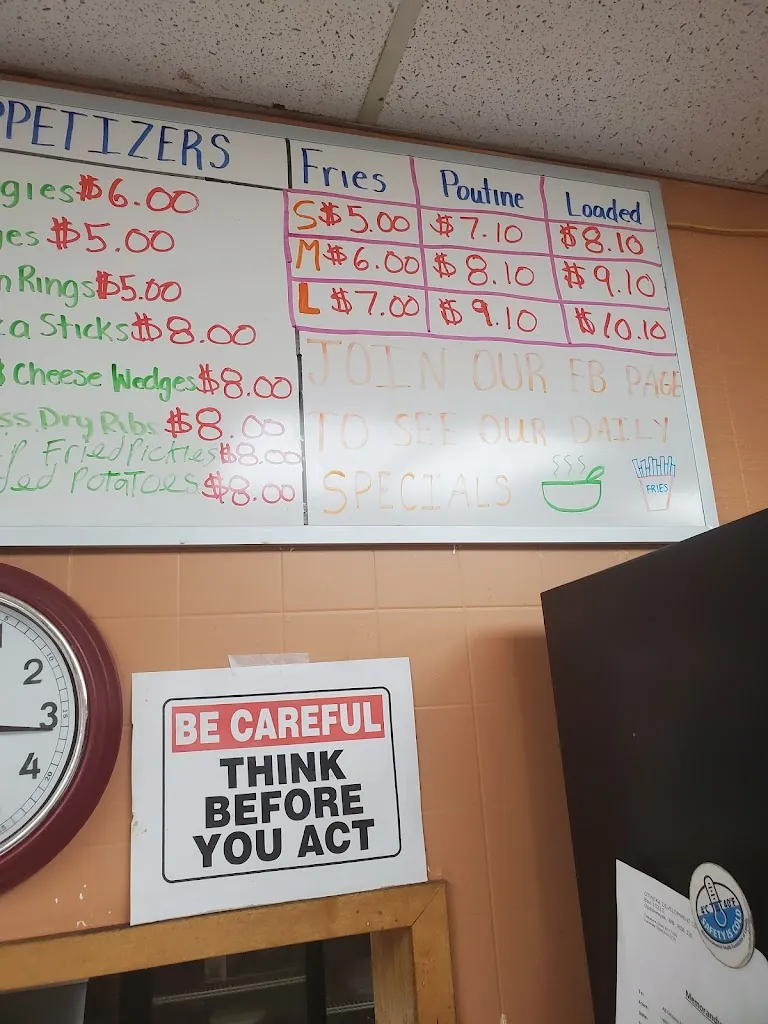 PPETIZERS
gies $6.00
ges $5.00
n Rings $5.00
za Sticks $8.00
$ Cheese Wedges $8.00
ss Dry Ribs $8.00
p Fried Pickles $8.00
ded Potatoes $8.00
Fries Poutine Loaded
S $5.00 $7.10 $8.10
M $6.00 $8.10 $9.10
L $7.00 $9.10 $10.10
JOIN OUR FB PAGE
TO SEE OUR DAILY
SPECIALS
FRIES
1
2
3
4
BE CAREFUL
THINK
BEFORE
YOU ACT
4°C 40°F
SAFETY IS COLD